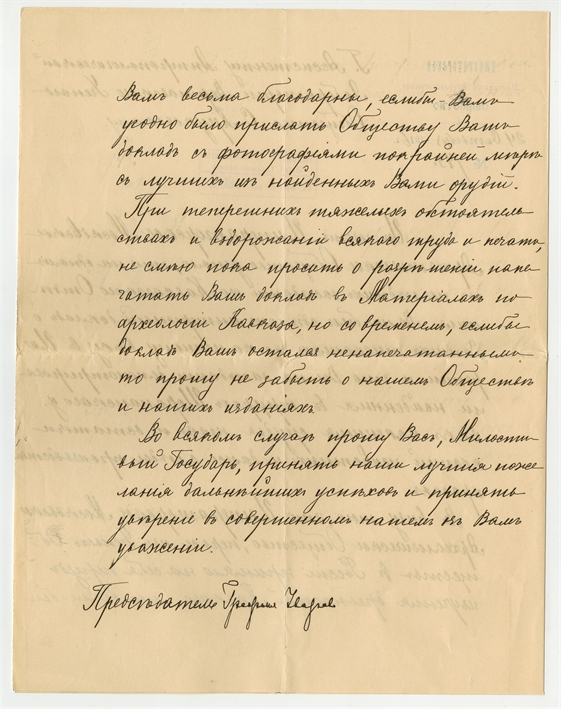 Вамъ весьма благодарны, еслибы Вамъ
угодно было прислать Обществу Вашъ
докладъ съ фотографіями покрайней мѣрѣ
съ лучшихъ изъ найденныхъ Вами орудій.
При теперешнихъ тяжелыхъ обстоятель
ствахъ и вздорожаніи всякаго труда и печати,
не смѣю пока просить о разрѣшеніи напе
чатать Вашъ докладъ въ Матеріалахъ по
археологіи Кавказа, но со временемъ, еслибы
докладъ Вашъ остался ненапечатаннымъ
то прошу не забыть о нашемъ Обществѣ
и нашихъ изданіяхъ.
Во всякомъ случаѣ прошу Васъ, Милости
вый Государь, принять наши лучшія поже
ланія дальнѣйшихъ успѣховъ и принять
увѣреніе въ совершенномъ нашемъ къ Вамъ
уваженіи.
Предсѣдатель Графиня Уварова